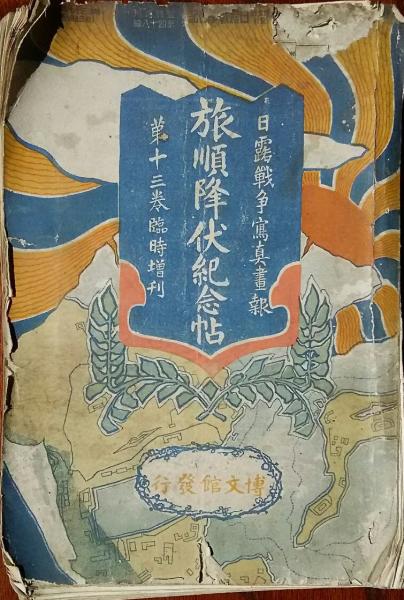 日露戰争寫真畫報
旅順降伏紀念帖
第十三卷臨時增刊
博文館發行